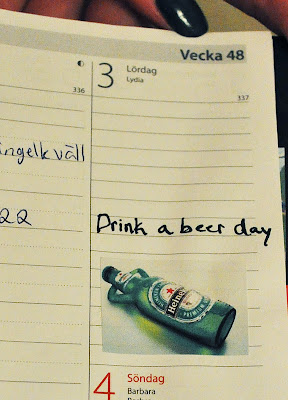 Vecka 48
3
Lördag
Lydia
336
337
ngelkväll
22
Drink a beer day
Heineken
PREMIUM
4
Söndag
Barbara